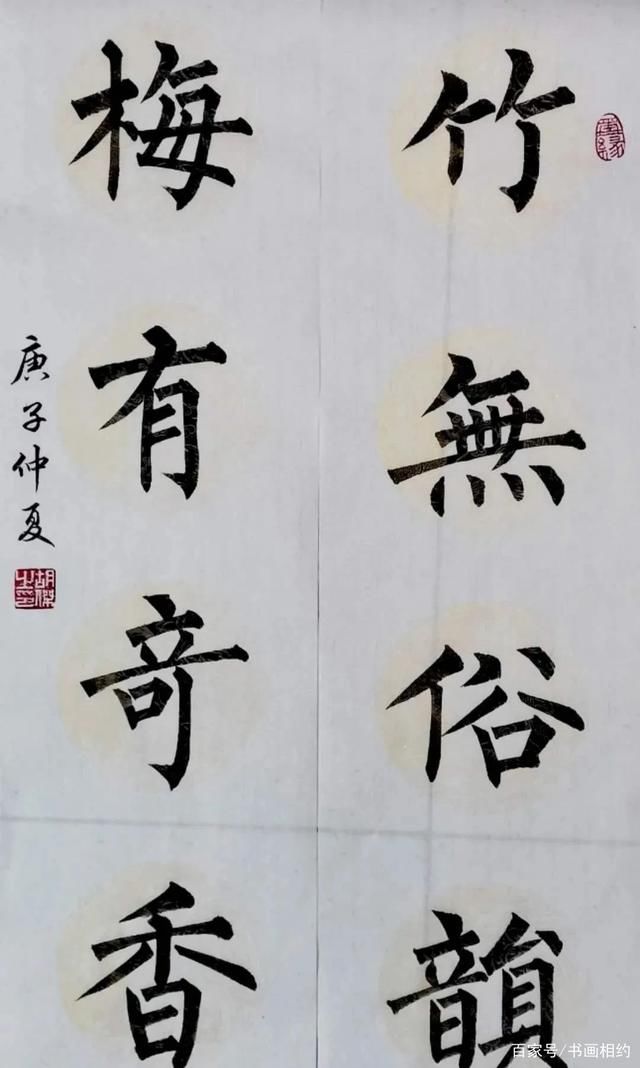 竹無俗韻
梅有奇香
庚子仲夏
胡傑之印
百家号/书画相约